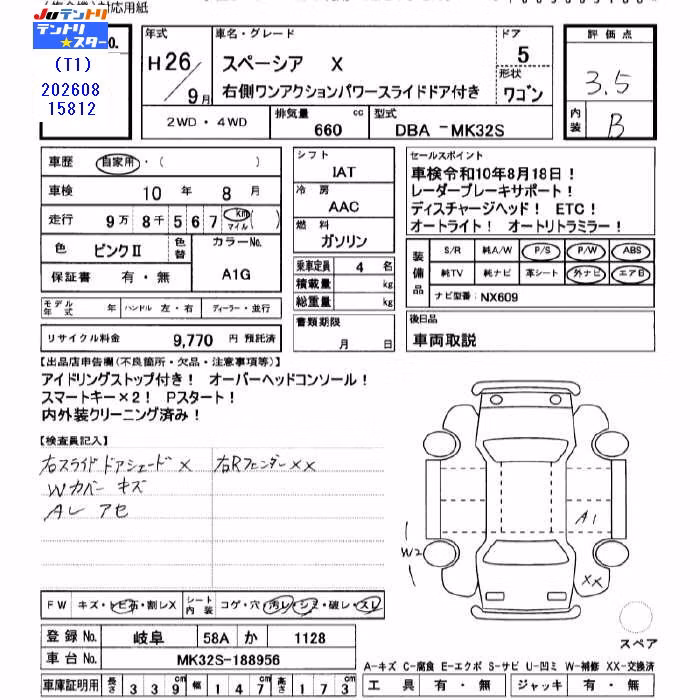 対応用紙
Juテントリ
テントリ★スター
(T1)
202608
15812
No.
年式
H26/9月
車名・グレード
スペーシア X
右側ワンアクションパワースライドドア付き
ドア
5
形状
ワゴン
評価点
3.5
内装
B
2WD・4WD
排気量
660 cc
型式
DBA -MK32S
車歴 自家用・( )
車検 10年 8月
走行 9万8千567 km マイル ( )
色 ピンクⅡ 色替 カラーNo. A1G
保証書 有・無
モデル年式 年 ハンドル 左・右 ディーラー・並行
リサイクル料金 9,770 円 預託済
シフト
IAT
冷房
AAC
燃料
ガソリン
乗車定員 4 名
積載量 kg
総重量 kg
書類期限
月 日
セールスポイント
車検令和10年8月18日!
レーダーブレーキサポート!
ディスチャージヘッド! ETC!
オートライト! オートリトラミラー!
装備品
S/R 純A/W P/S P/W ABS
純TV 純ナビ 革シート 外ナビ エアB
ナビ型番: NX609
後日品
車両取説
【出品店申告欄(不良箇所・欠品・注意事項等)】
アイドリングストップ付き! オーバーヘッドコンソール!
スマートキー×2! Pスタート!
内外装クリーニング済み!
【検査員記入】
右スライドドアシェード X 右Rフェンダー XX
Wカバー キズ
Aレ アセ
W2
A1
XX
スペア
FW キズ・トビ石・割レX シート内装 コゲ・穴・汚レ・シミ・破レ・スレ
登録No. 岐阜 58A か 1128
車台No. MK32S-188956
A-キズ C-腐食 E-エクボ S-サビ U-凹ミ W-補修 XX-交換済
車庫証明用 長さ 339 幅 147 高さ 173
工具 有・無 ジャッキ 有・無